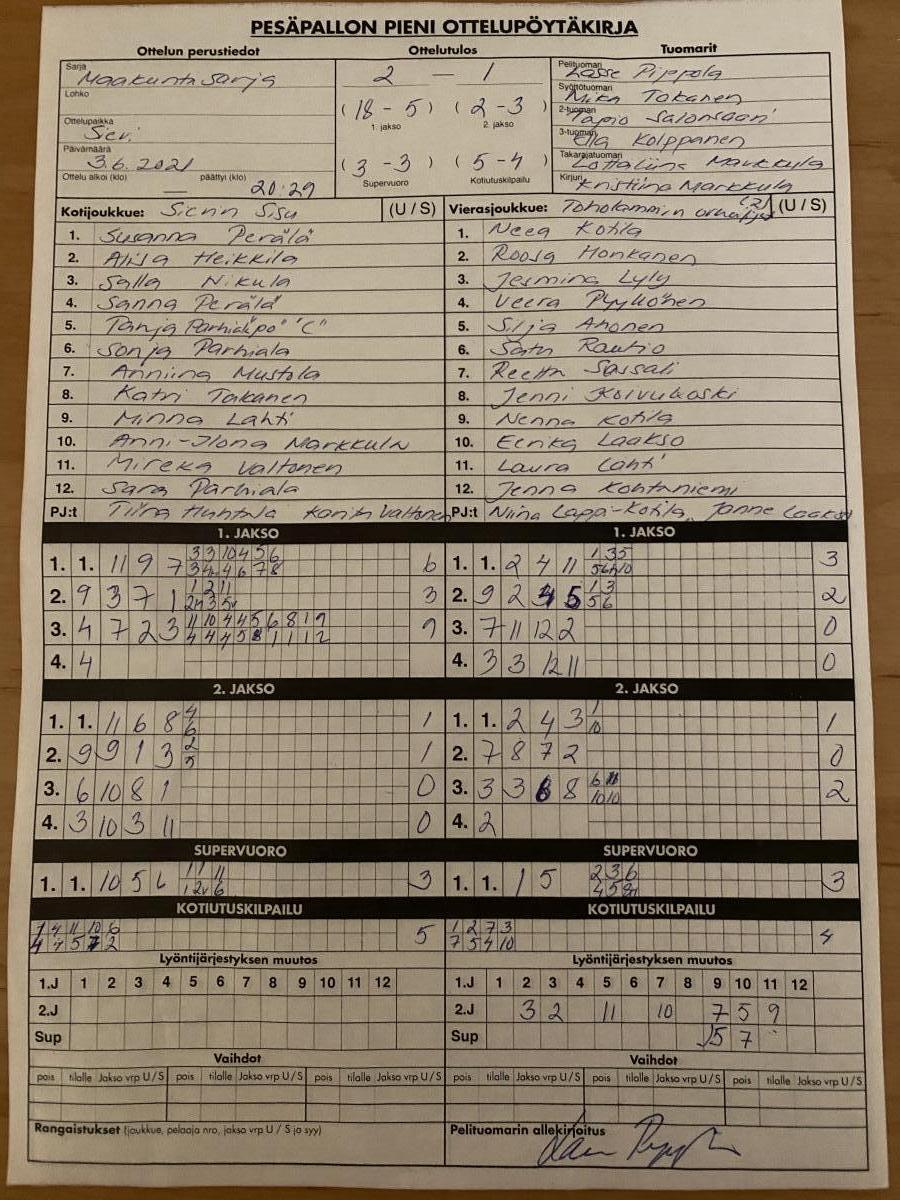 PESÄPALLON PIENI OTTELUPÖYTÄKIRJA
Ottelun perustiedot Ottelutulos Tuomarit
Sarja Maakuntasarja
Lohko
Ottelupaikka Sievi
Päivämäärä 3.6.2021
Ottelu alkoi (klo) — päättyi (klo) 20:29
2 – 1
(18 - 5) (2 - 3)
1. jakso 2. jakso
(3 - 3) (5 - 4)
Supervuoro Kotiutuskilpailu
Pelituomari Lasse Pippola
Syöttötuomari Mika Takanen
2-tuomari Tapio Salonsaari
3-tuomari Ella Kolppanen
Takarajatuomari Lottaliina Markkula
Kirjuri Kristiina Markkula
Kotijoukkue: Sievin Sisu (U / S) Vierasjoukkue: Toholammin (2) (U / S)
1. Susanna Perälä 1. Neea Kotila
2. Alisa Heikkilä 2. Roosa Honkanen
3. Salla Nikula 3. Jesmina Lyly
4. Sanna Perälä 4. Veera Pyykönen
5. Tanja "C" 5. Silja Ahonen
6. Sonja Parhiala 6. Satu Rautio
7. Anniina Mustola 7. Reetta Sassali
8. Katri Takanen 8. Jenni Koivukoski
9. Minna Lahti 9. Nenna Kotila
10. Anni-Ilona Markkula 10. Eerika Laakso
11. Mireka Valtonen 11. Laura Lahti
12. Sara Parhiala 12. Jenna Kohtaniemi
PJ:t Tiina Huhtala Valtonen PJ:t Niina Lappi-Kotila, Janne Laakso
1. JAKSO 1. JAKSO
1. 1. 11 9 7 3 3 10 4 5 6 6 1. 1. 2 4 11 1 3 5 3
2. 9 3 7 1 1 2 11 3 2. 9 2 4 5 1 3 2
5 6
3. 4 7 2 3 11 10 4 4 5 6 8 1 9 9 3. 7 11 12 2 0
4 4 4 5 8 1 1 1 2
4. 4 4. 3 3 12 11 0
2. JAKSO 2. JAKSO
1. 1. 11 6 8 4 1 1. 1. 2 4 3 1 1
6 10
2. 9 9 1 3 2 1 2. 7 8 7 2 0
5
3. 6 10 8 1 0 3. 3 3 6 8 6 11 2
10 10
4. 3 10 3 11 0 4. 2
SUPERVUORO SUPERVUORO
1. 1. 10 5 6 1 1 11 3 1. 1. 1 5 2 3 6 3
KOTIUTUSKILPAILU KOTIUTUSKILPAILU
1 4 11 10 6 5 1 2 7 3 4
4 4 5 7 2 7 5 4 10
Lyöntijärjestyksen muutos Lyöntijärjestyksen muutos
1.J 1 2 3 4 5 6 7 8 9 10 11 12 1.J 1 2 3 4 5 6 7 8 9 10 11 12
2.J 2.J 3 2 11 10 7 5 9
Sup Sup 5 7
Vaihdot Vaihdot
pois tilalle Jakso vrp U / S pois tilalle Jakso vrp U / S pois tilalle Jakso vrp U / S pois tilalle Jakso vrp U / S pois tilalle Jakso vrp U / S pois tilalle Jakso vrp U / S
Rangaistukset (joukkue, pelaaja nro, jakso vrp U / S ja syy) Pelituomarin allekirjoitus